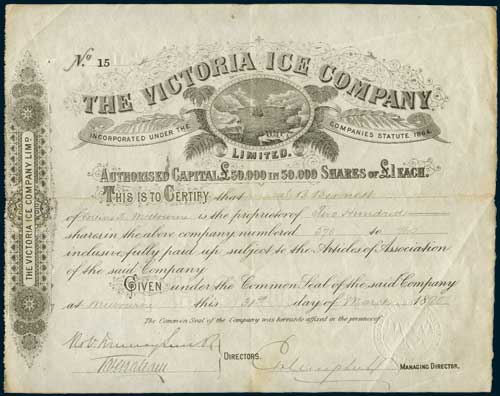 Nº 15
THE VICTORIA ICE COMPANY
INCORPORATED UNDER THE COMPANIES STATUTE 1864.
LIMITED.
AUTHORISED CAPITAL £50,000 IN 50,000 SHARES OF £1 EACH.
THIS IS TO CERTIFY that B
of Melbourne is the proprietor of Hundred
shares in the above company numbered to
inclusive, fully paid up, subject to the Articles of Association
of the said Company
GIVEN under the Common Seal of the said Company
at Melbourne this 31st day of March
The Common Seal of the Company was hereunto affixed in the presence of
DIRECTORS.
MANAGING DIRECTOR.
THE VICTORIA ICE COMPANY LIMD.